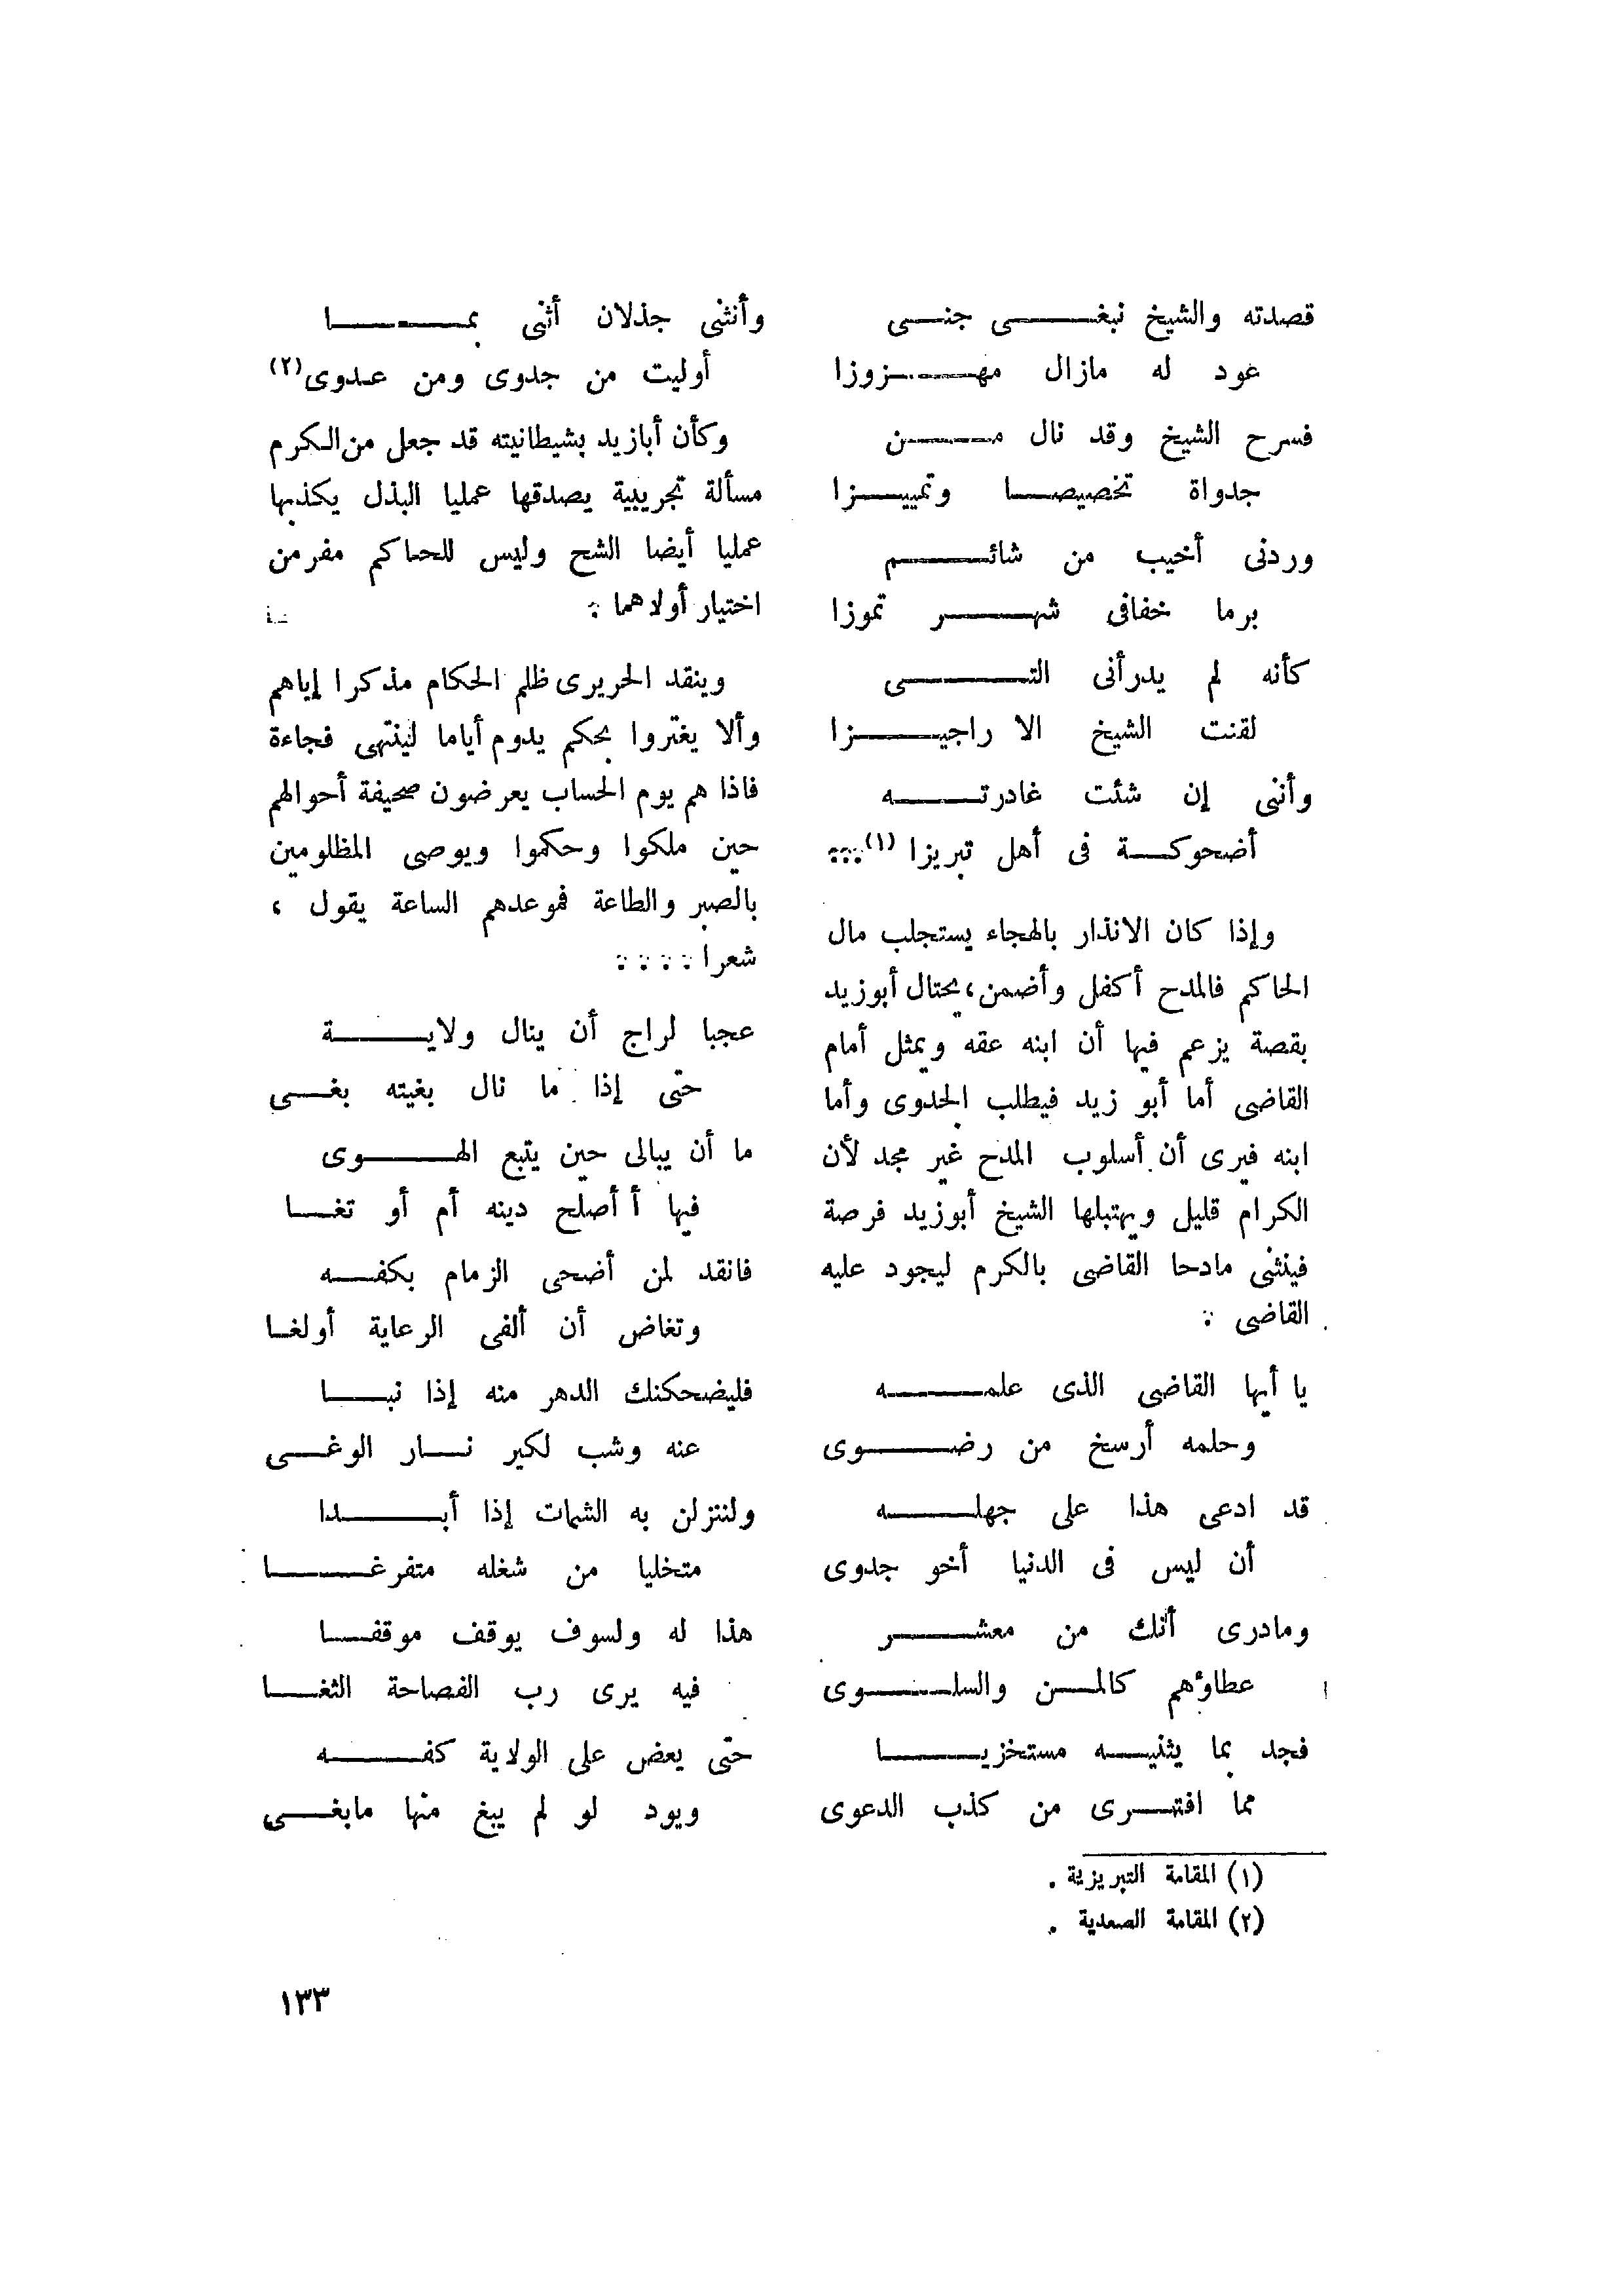 قصدته والشيخ نبغى جنى
عود له مازال مهزوزا
فسرح الشيخ وقد نال من
جدواة تخصيصا وتمييزا
وردنى أخيب من شائم
برما خفافى شهر تموزا
كأنه لم يدرأنى التى
لقنت الشيخ الا راجيزا
وأننى إن شئت غادرته
أضحوكة فى أهل تبريزا (١)
وإذا كان الانذار بالهجاء يستجلب مال
الحاكم فالمدح أكفل وأضمن، يحتال أبوزيد
بقصة يزعم فيها أن ابنه عقه ويمثل أمام
القاضى أما أبو زيد فيطلب الجدوى وأما
ابنه فيرى أن أسلوب المدح غير مجد لأن
الكرام قليل ويهتبلها الشيخ أبوزيد فرصة
فينثنى مادحا القاضى بالكرم ليجود عليه
القاضى :
يا أيها القاضى الذى علمه
وحلمه أرسخ من رضوى
قد ادعى هذا على جهله
أن ليس فى الدنيا أخو جدوى
ومادرى أنك من معشر
عطاؤهم كالمن والسلوى
فجد بما يثنيه مستخزيا
مما افترى من كذب الدعوى
وأنثنى جذلان أثنى بما
أوليت من جدوى ومن عدوى (٢)
وكأن أبازيد بشيطانيته قد جعل من الكرم
مسألة تجريبية يصدقها عمليا البذل يكذبها
عمليا أيضا الشح وليس للحاكم مفرمن
اختيار أولاهما :
وينقد الحريرى ظلم الحكام مذكرا إياهم
وألا يغتروا بحكم يدوم أياما لينتهى فجاءة
فاذا هم يوم الحساب يعرضون صحيفة أحوالهم
حين ملكوا وحكموا ويوصى المظلومين
بالصبر والطاعة فموعدهم الساعة يقول ،
شعرا : : : :
عجبا لراج أن ينال ولاية
حتى إذا ما نال بغيته بغى
ما أن يبالى حين يتبع الهوى
فيها أ أصلح دينه أم أو تغا
فانقد لمن أضحى الزمام بكفه
وتغاض أن ألفى الرعاية أولغا
فليضحكنك الدهر منه إذا نبا
عنه وشب لكير نار الوغى
ولنتزلن به الشمات إذا أبدا
متخليا من شغله متفرغا
هذا له ولسوف يوقف موقفا
فيه يرى رب الفصاحة الثغا
حتى يعض على الولاية كفه
ويود لو لم يبغ منها مابغى
(١) المقامة التبريزية .
(٢) المقامة الصعدية .
١٣٣